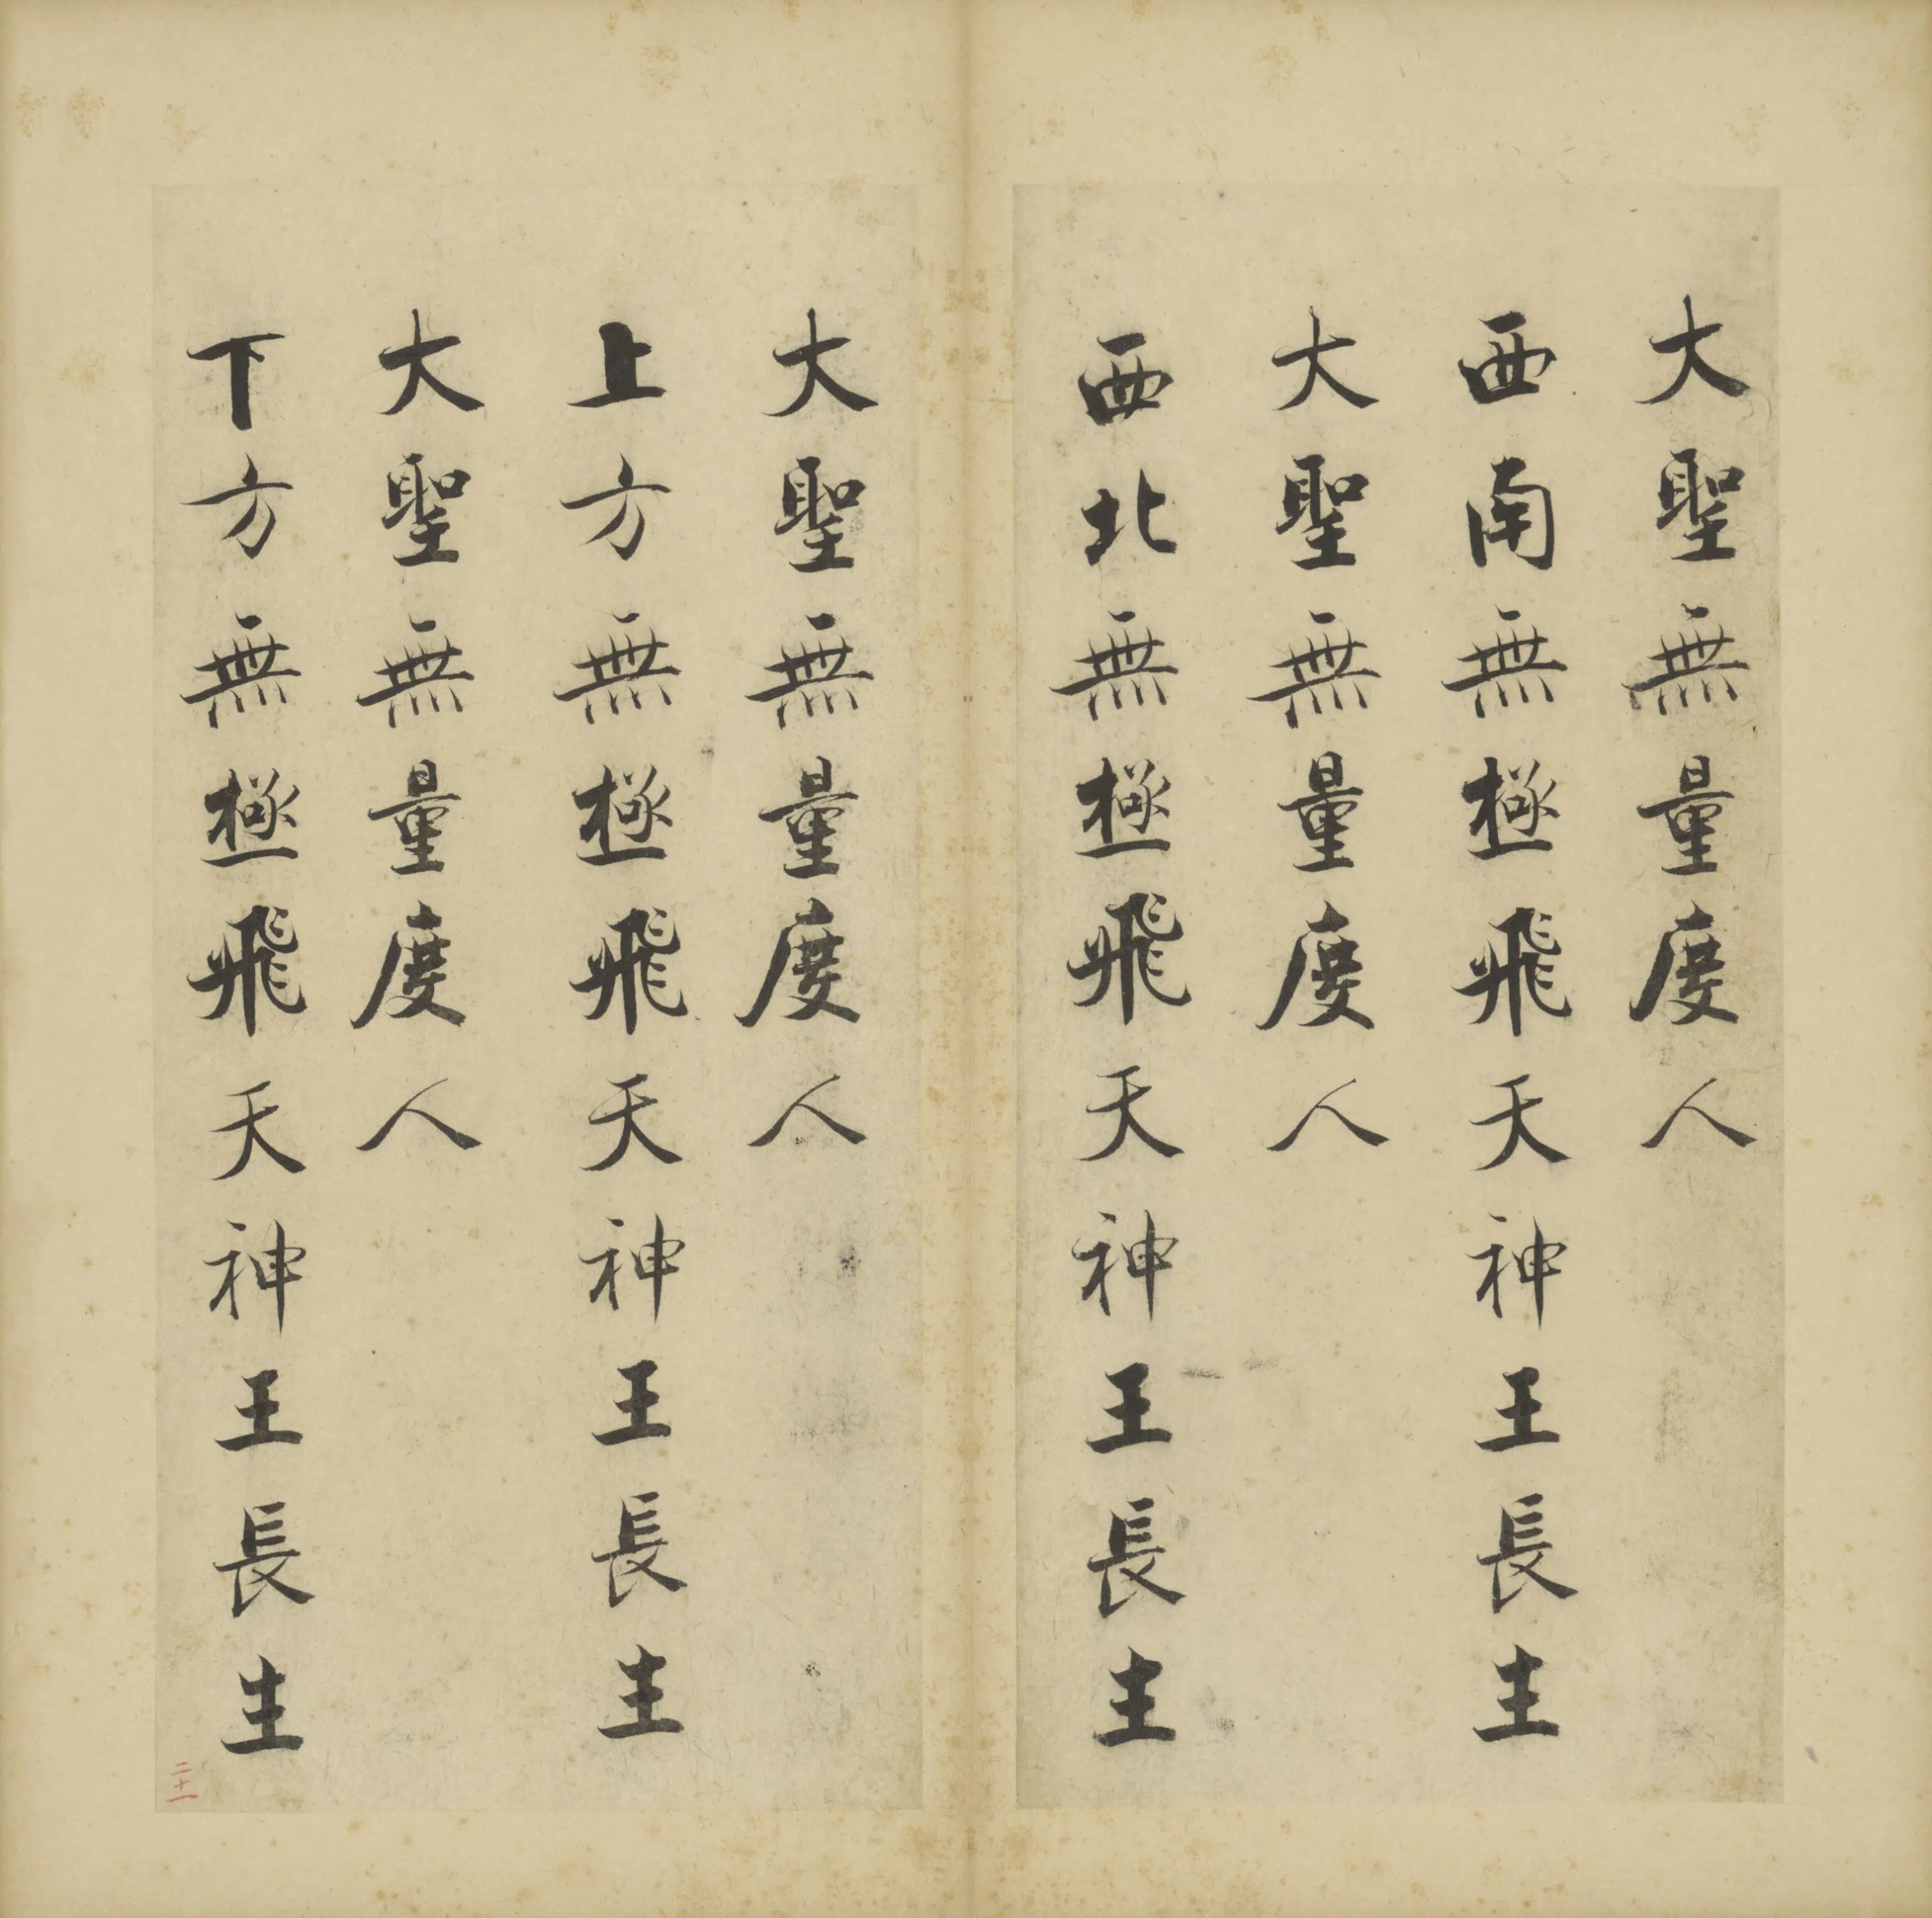 大聖無量度人
西南無極飛天神王長生
大聖無量度人
西北無極飛天神王長生
大聖無量度人
上方無極飛天神王長生
大聖無量度人
下方無極飛天神王長生
二十一